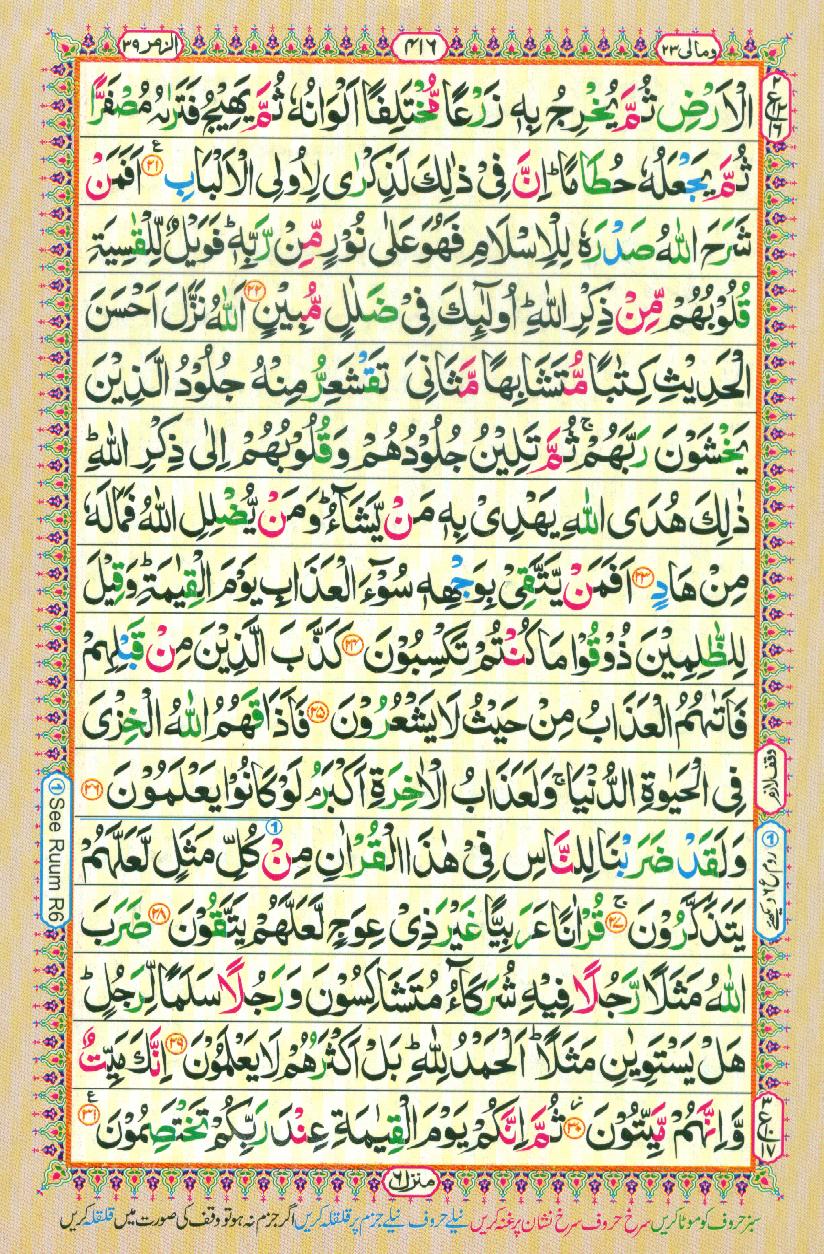 الزمر ٣٩
٤١٦
ومالی ٢٣
الْاَرْضِ ثُمَّ یُخْرِجُ بِهٖ زَرْعًا مُّخْتَلِفًا اَلْوَانُهٗ ثُمَّ یَهِیْجُ فَتَرٰىهُ مُصْفَرًّا
ثُمَّ یَجْعَلُهٗ حُطَامًا ؕ اِنَّ فِیْ ذٰلِكَ لَذِكْرٰى لِاُولِی الْاَلْبَابِ ٢١ اَفَمَنْ
شَرَحَ اللّٰهُ صَدْرَهٗ لِلْاِسْلَامِ فَهُوَ عَلٰى نُوْرٍ مِّنْ رَّبِّهٖ ؕ فَوَیْلٌ لِّلْقٰسِیَةِ
قُلُوْبُهُمْ مِّنْ ذِكْرِ اللّٰهِ ؕ اُولٰٓىِٕكَ فِیْ ضَلٰلٍ مُّبِیْنٍ ٢٢ اَللّٰهُ نَزَّلَ اَحْسَنَ
الْحَدِیْثِ كِتٰبًا مُّتَشَابِهًا مَّثَانِیَ تَقْشَعِرُّ مِنْهُ جُلُوْدُ الَّذِیْنَ
یَخْشَوْنَ رَبَّهُمْ ۚ ثُمَّ تَلِیْنُ جُلُوْدُهُمْ وَقُلُوْبُهُمْ اِلٰى ذِكْرِ اللّٰهِ ؕ
ذٰلِكَ هُدَى اللّٰهِ یَهْدِیْ بِهٖ مَنْ یَّشَآءُ ؕ وَمَنْ یُّضْلِلِ اللّٰهُ فَمَا لَهٗ
مِنْ هَادٍ ٢٣ اَفَمَنْ یَّتَّقِیْ بِوَجْهِهٖ سُوْٓءَ الْعَذَابِ یَوْمَ الْقِیٰمَةِ ؕ وَقِیْلَ
لِلظّٰلِمِیْنَ ذُوْقُوْا مَا كُنْتُمْ تَكْسِبُوْنَ ٢٤ كَذَّبَ الَّذِیْنَ مِنْ قَبْلِهِمْ
فَاَتٰىهُمُ الْعَذَابُ مِنْ حَیْثُ لَا یَشْعُرُوْنَ ٢٥ فَاَذَاقَهُمُ اللّٰهُ الْخِزْیَ
فِی الْحَیٰوةِ الدُّنْیَا ۚ وَلَعَذَابُ الْاٰخِرَةِ اَكْبَرُ ۘ لَوْ كَانُوْا یَعْلَمُوْنَ ٢٦
وَلَقَدْ ضَرَبْنَا لِلنَّاسِ فِیْ هٰذَا الْقُرْاٰنِ مِنْ كُلِّ مَثَلٍ لَّعَلَّهُمْ
یَتَذَكَّرُوْنَ ٢٧ قُرْاٰنًا عَرَبِیًّا غَیْرَ ذِیْ عِوَجٍ لَّعَلَّهُمْ یَتَّقُوْنَ ٢٨ ضَرَبَ
اللّٰهُ مَثَلًا رَّجُلًا فِیْهِ شُرَكَآءُ مُتَشَاكِسُوْنَ وَرَجُلًا سَلَمًا لِّرَجُلٍ ؕ
هَلْ یَسْتَوِیٰنِ مَثَلًا ؕ اَلْحَمْدُ لِلّٰهِ ۚ بَلْ اَكْثَرُهُمْ لَا یَعْلَمُوْنَ ٢٩ اِنَّكَ مَیِّتٌ
وَّاِنَّهُمْ مَّیِّتُوْنَ ٣٠ ثُمَّ اِنَّكُمْ یَوْمَ الْقِیٰمَةِ عِنْدَ رَبِّكُمْ تَخْتَصِمُوْنَ ٣١
وقف لازم
① See Ruum R6
منزل ٦
سبز حروف کو موٹا کریں سرخ حروف سرخ نشان پر غنہ کریں نیلے حروف نیلے جزم پر قلقلہ کریں اگر جزم نہ ہو تو وقف کی صورت میں قلقلہ کریں